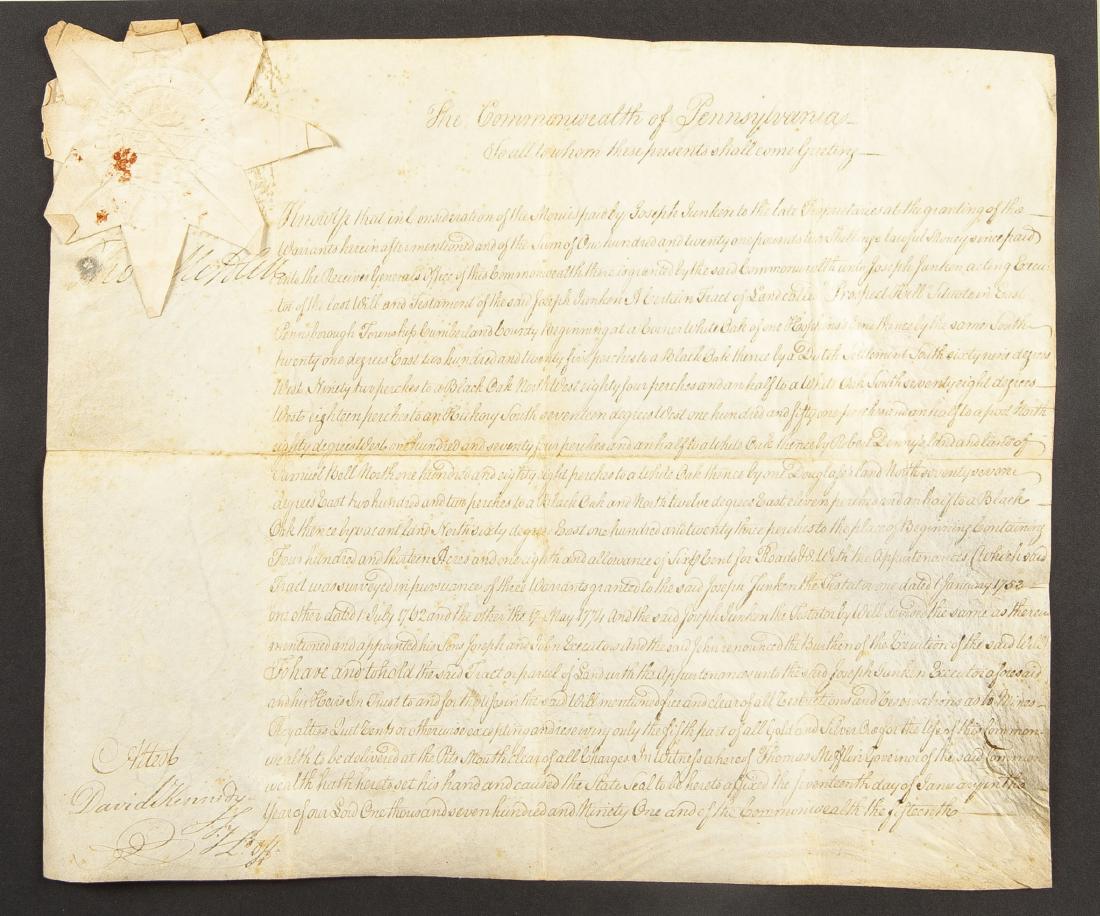 The Commonwealth of Pennsylvania
To all to whom these presents shall come Greeting
Know Ye that in Consideration of the Monies paid by Joseph Junken to the late Proprietaries at the granting of the
Warrants herein after mentioned and of the Sum of One hundred and twenty one pounds two Shillings lawful Money since paid
into the Receiver General's Office of this Commonwealth there is granted by the said Commonwealth unto Joseph Junken, acting Execu-
tor of the last Will and Testament of the said Joseph Junken A Certain Tract of Land called Prospect Hill Situate in East
Pennsborough Township Cumberland County Beginning at a Corner White Oak of one thence by the same South
twenty one degrees East two hundred and twenty five perches to a Black Oak thence by a Dutch Settlement South sixty nine degrees
West Ninety two perches to a Black Oak North West eighty four perches and an half to a White Oak South seventy eight degrees
West eighteen perches to an Hickory South seventeen degrees West one hundred and fifty one perches and an half to a post North
eighty degrees West one hundred and seventy perches and an half to a White Oak thence by Robert Denny's land and land of
Samuel Bell North one hundred and eighty eight perches to a White Oak thence by one Douglass's land North seventy seven
degrees East two hundred and two perches to a Black Oak and North twelve degrees East eleven perches and an half to a Black
Oak thence by vacant land North sixty degrees East one hundred and twenty three perches to the place of Beginning Containing
Four hundred and thirteen Acres and one eighth and allowance of Six P Cent for Roads &c With the Appurtenances (which said
Tract was surveyed in pursuance of three Warrants granted to the said Joseph Junken the Testator one dated 1 January 1753
one other dated 1 July 1762 and the other the 17 May 1774 And the said Joseph Junken the Testator by Will devised the same as therein
mentioned and appointed his Sons Joseph and John Executors And the said John renounced the Burthen of the Execution of the said Will)
To have and to hold the said Tract or parcel of Land with the Appurtenances unto the said Joseph Junken Executor aforesaid
and his Heirs In Trust to and for the Uses in the said Will mentioned free and clear of all Restrictions and Reservations as to Mines
Royalties Quit Rents or otherwise excepting and reserving only the fifth part of all Gold and Silver Ore for the Use of the Common-
wealth to be delivered at the Pits Mouth clear of all Charges In Witness whereof Thomas Mifflin Governor of the said Common
wealth Hath hereto set his hand and caused the State Seal to be hereto affixed the seventeenth day of January in the
Year of our Lord One thousand seven hundred and Ninety One and of the Commonwealth the fifteenth
Tho Mifflin
Attest
David Kennedy